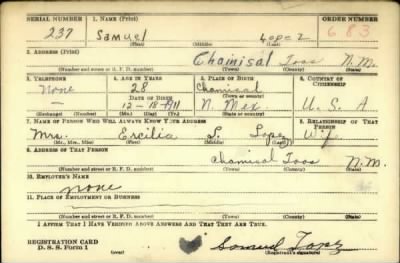 SERIAL NUMBER 1. NAME (Print) ORDER NUMBER
237 Samuel Lopez 683
(First) (Middle) (Last)
2. ADDRESS (Print)
Chamisal Taos N.M.
(Number and street or R. F. D. number) (Town) (County) (State)
3. TELEPHONE 4. AGE IN YEARS 5. PLACE OF BIRTH 6. COUNTRY OF CITIZENSHIP
None 28 Chamisal
DATE OF BIRTH (Town or county)
— 12-18-1911 N. Mex. U. S. A
(Exchange) (Number) (Mo.) (Day) (Yr.) (State or country)
7. NAME OF PERSON WHO WILL ALWAYS KNOW YOUR ADDRESS 8. RELATIONSHIP OF THAT PERSON
Mrs. Ercilia L. Lopez Wife
(Mr., Mrs., Miss) (First) (Middle) (Last)
9. ADDRESS OF THAT PERSON
Chamisal Taos N.M.
(Number and street or R. F. D. number) (Town) (County) (State)
10. EMPLOYER'S NAME
none
11. PLACE OF EMPLOYMENT OR BUSINESS
(Number and street or R. F. D. number) (Town) (County) (State)
I AFFIRM THAT I HAVE VERIFIED ABOVE ANSWERS AND THAT THEY ARE TRUE.
REGISTRATION CARD
D. S. S. Form 1 (over) Samuel Lopez
(Registrant's signature)